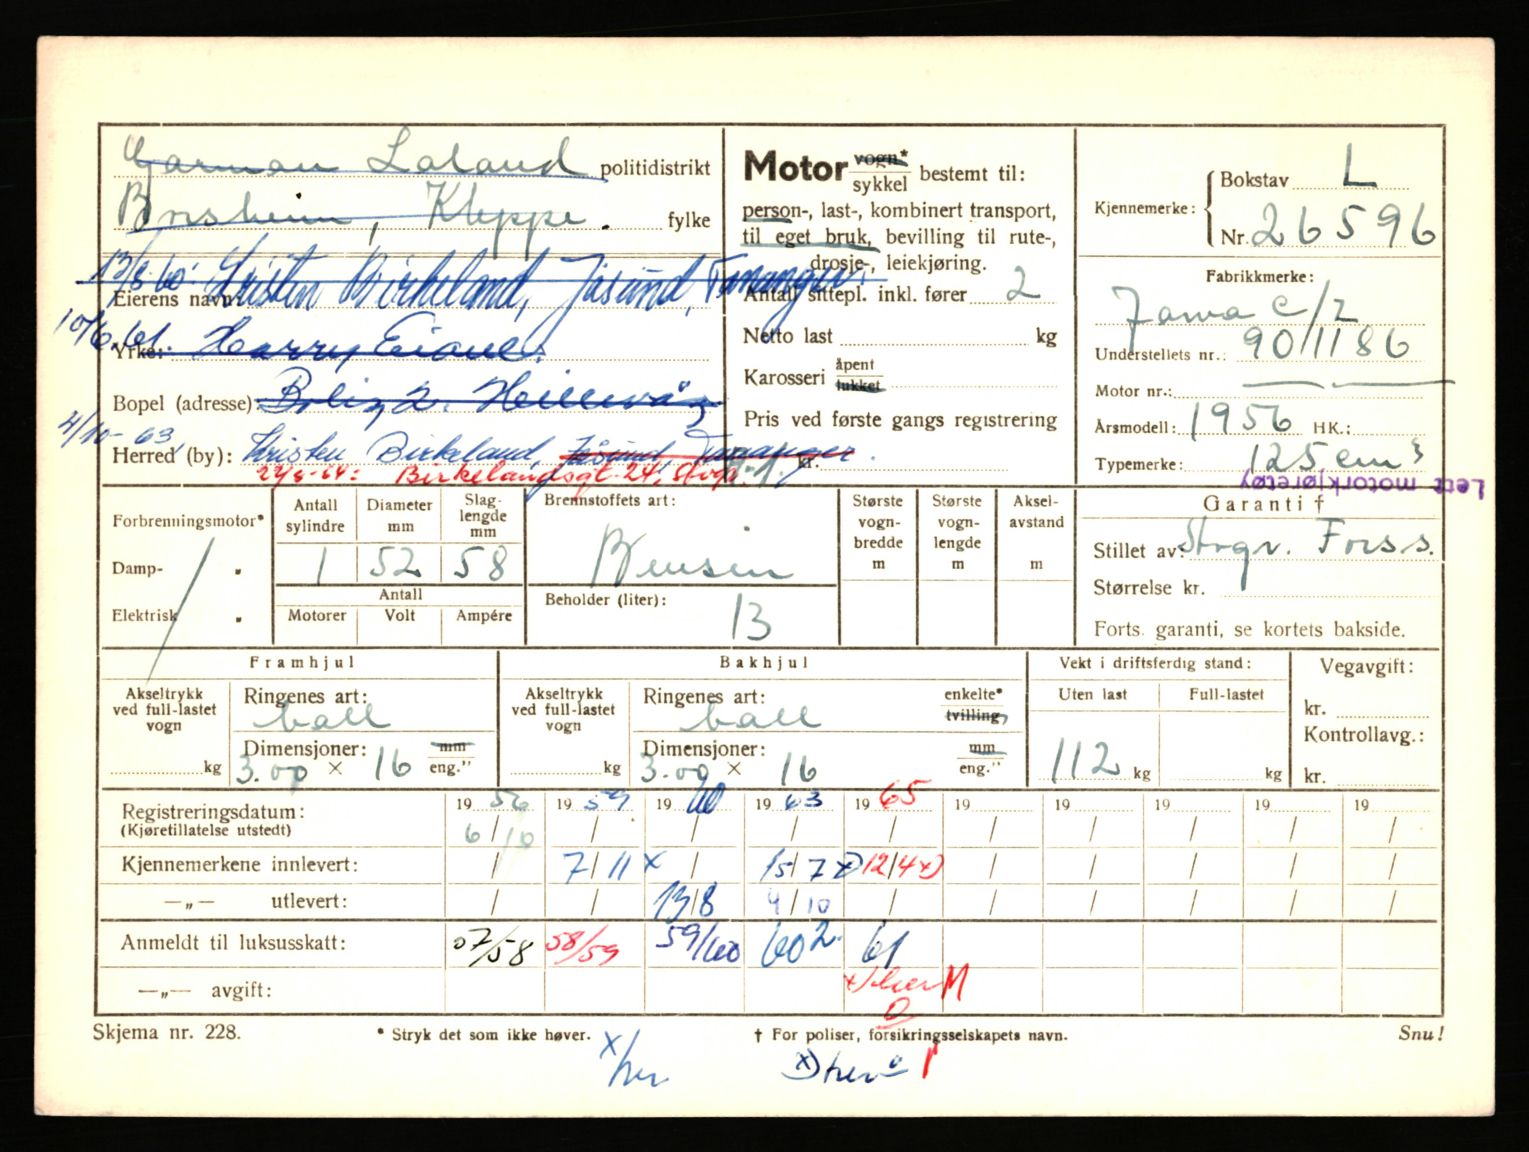 Garman Laland politidistrikt
Borsheim, Kleppe. fylke
13/8-60: Kristen Birkeland, Jåsund, Tananger.
Eierens navn
10/6.61.
Yrke: Harry Eiane.
Bopel (adresse):
4/10-63,
Herred (by): Kristen Birkeland, Jåsund, Tananger.
22/5-64: Birkelandsgt. 24, Stvgr.
Motor vogn*
sykkel bestemt til:
person-, last-, kombinert transport,
til eget bruk, bevilling til rute-,
drosje-, leiekjøring.
Antall sittepl. inkl. fører 2
Netto last kg
Karosseri åpent
lukket
Pris ved første gangs registrering
kr.
Kjennemerke: Bokstav L
Nr. 26596
Fabrikkmerke:
Jawa C/Z
Understellets nr.: 90/11186
Motor nr.:
Årsmodell: 1956 HK.:
Typemerke: 125 cm3
Lett motorkjøretøy
Forbrenningsmotor*
Damp- "
Elektrisk "
Antall sylindre
Diameter mm
Slag-lengde mm
1 52 58
Antall
Motorer Volt Ampére
Brennstoffets art:
Bensin
Beholder (liter):
13
Største vogn-bredde m
Største vogn-lengde m
Aksel-avstand m
Garanti †
Stillet av: Stvgr. Forss.
Størrelse kr.
Forts. garanti, se kortets bakside.
Framhjul
Akseltrykk ved full-lastet vogn
kg
Ringenes art:
ball
Dimensjoner: mm
3.00 × 16 eng."
Bakhjul
Akseltrykk ved full-lastet vogn
kg
Ringenes art: enkelte*
ball tvilling
Dimensjoner: mm
3.00 × 16 eng."
Vekt i driftsferdig stand:
Uten last Full-lastet
112 kg kg
Vegavgift:
kr.
Kontrollavg.:
kr.
Registreringsdatum: 19 56 19 59 19 60 19 63 19 65 19 19 19 19 19
(Kjøretillatelse utstedt) / / / / / / / / /
Kjennemerkene innlevert: / 7/11 x / 15/7 x) 12/4 x) / / / / /
—„— utlevert: / / 13/8 4/10 / / / / / /
Anmeldt til luksusskatt: 07/58 58/59 59/60 60 2. 61
—„— avgift: x) her M
O
Skjema nr. 228. * Stryk det som ikke høver. † For poliser, forsikringsselskapets navn. Snu!
x/her x) her